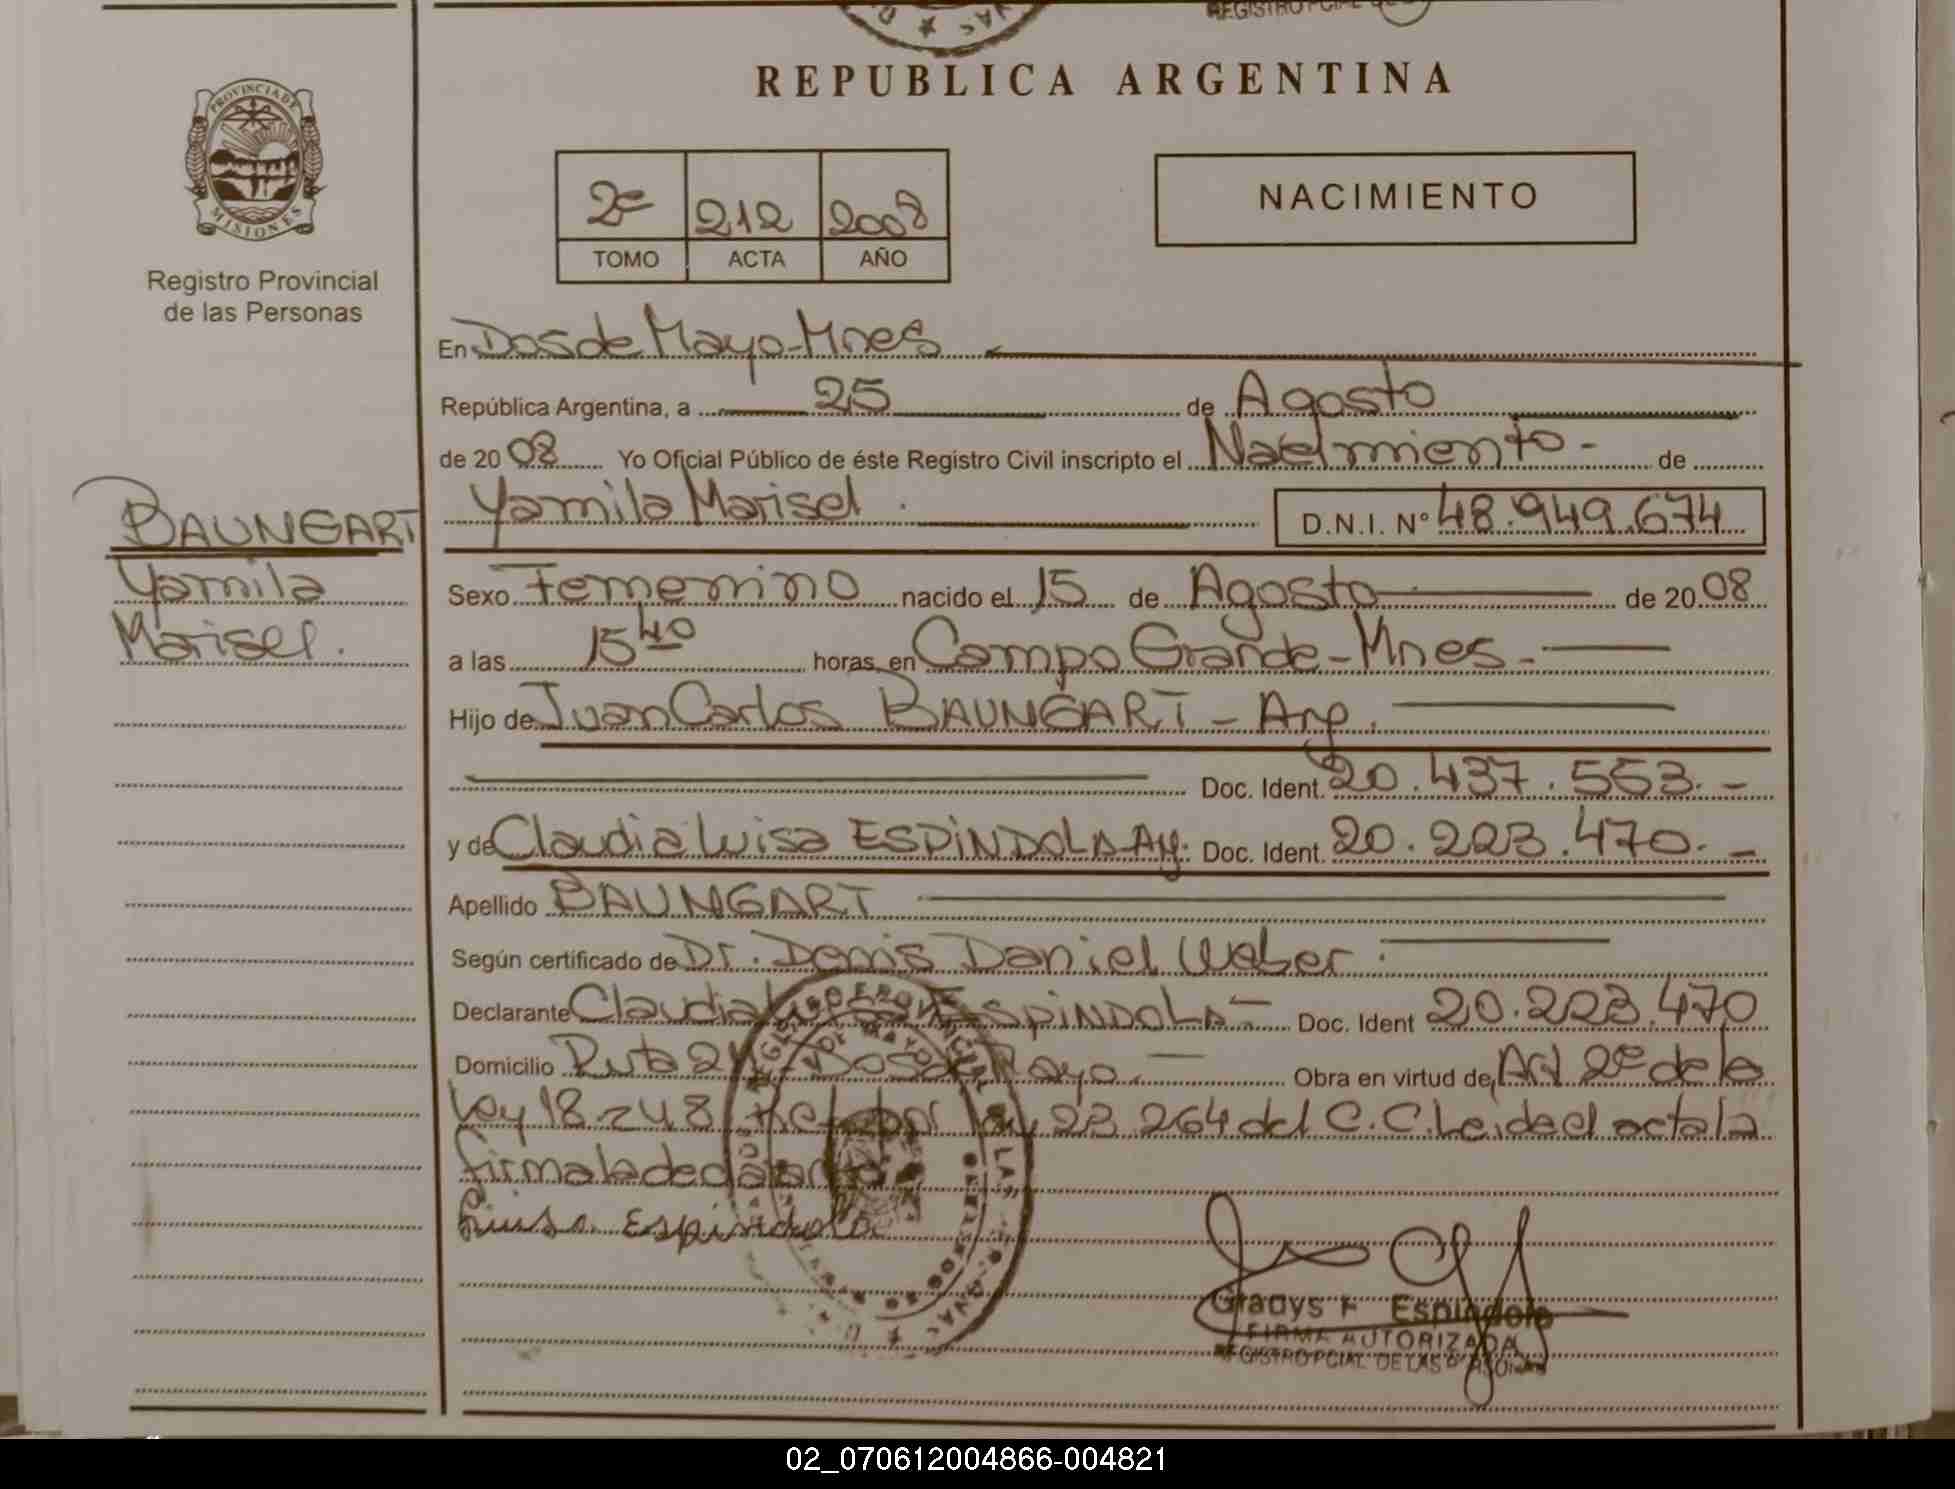 REGISTRO PCIAL DE
REPUBLICA ARGENTINA
PROVINCIA DE
MISIONES
Registro Provincial
de las Personas
2º 212 2008
TOMO ACTA AÑO
NACIMIENTO
En Dos de Mayo-Mnes
República Argentina, a 25 de Agosto
de 2008 Yo Oficial Público de éste Registro Civil inscripto el Nacimiento - de
Yamila Marisel. D.N.I. Nº 48.949.674
BAUNGART
Yamila
Marisel.
Sexo Femenino nacido el 15 de Agosto de 2008
a las 15 40 horas, en Campo Grande-Mnes.
Hijo de Juan Carlos BAUNGART - Arg.
Doc. Ident. 20.437.553.-
y de Claudia Luisa ESPINDOLA-Ag. Doc. Ident. 20.223.470.-
Apellido BAUNGART
Según certificado de Dr. Denis Daniel Weber.
Declarante Claudia ESPINDOLA- Doc. Ident 20.223.470
Domicilio Ruta Dos de Mayo. Obra en virtud de, Art 2º de la
Ley 18248 Ley 23264 del C.C. Leida el acta la
firma la declarante
Luisa Espindola
Gladys F Espindola
FIRMA AUTORIZADA
REGISTRO PCIAL DE LAS PERSONAS
02_070612004866-004821